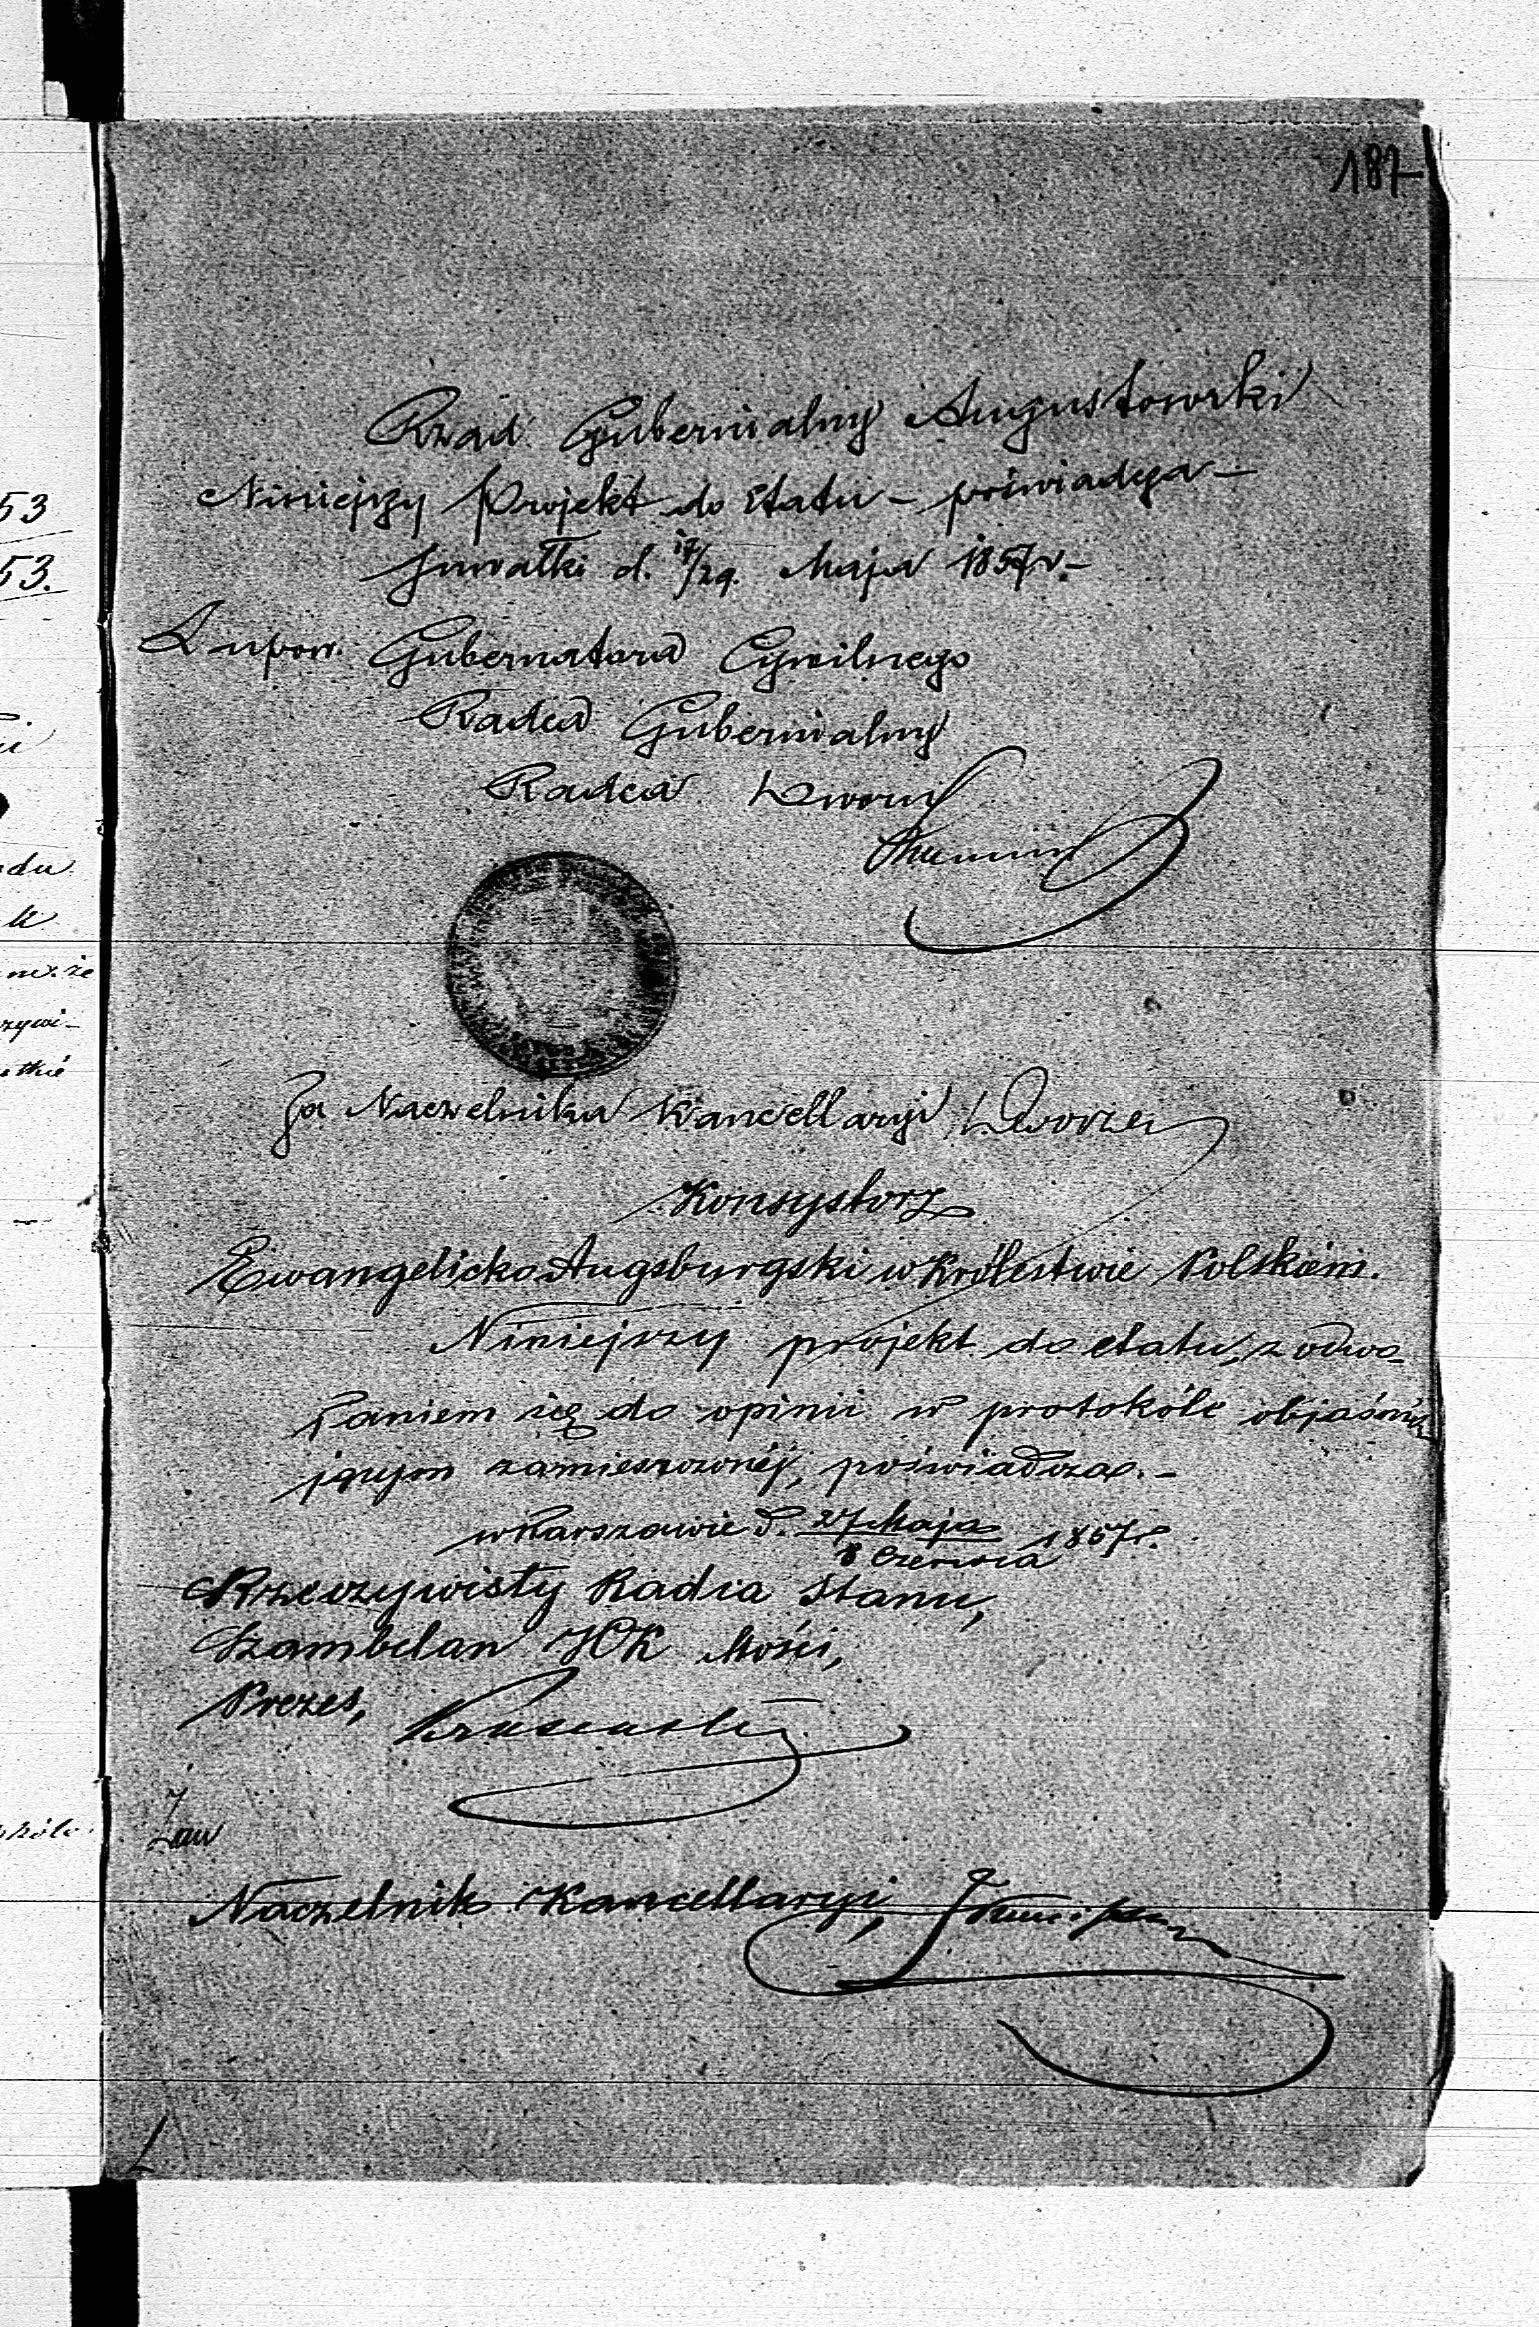 187
Rząd Gubernialny Augustowski
Niniejszy Projekt do Etatu – poświadcza –
Suwałki d. 17/29. Maja 1857 r. –
Z upow. Gubernatora Cywilnego
Radca Gubernialny
Radca Dworu
Za Naczelnika Kancellaryi
Konsystorz
Ewangelicko Augsburgski w Królestwie Polskiem.
Niniejszy projekt do etatu, z odwo-
łaniem się do opinii w protokóle objaśnia
jącym zamieszczonéj, poświadcza. –
w Warszawie d. 27 Maja / 8 Czerwca 1857 r.
Rzeczywisty Radca Stanu,
Szambelan JCK Mości,
Prezes,
Naczelnik Kancellaryi,
53
53.